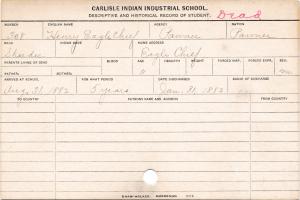 CARLISLE INDIAN INDUSTRIAL SCHOOL.
DESCRIPTIVE AND HISTORICAL RECORD OF STUDENT. Dead
NUMBER ENGLISH NAME AGENCY NATION
308 Henry Eagle Chief Pawnee Pawnee
BAND INDIAN NAME HOME ADDRESS
Skeedee Eagle Chief
PARENTS LIVING OR DEAD BLOOD AGE HEIGHT WEIGHT FORCED INSP. FORCED EXPR. SEX
FATHER MOTHER
ARRIVED AT SCHOOL FOR WHAT PERIOD DATE DISCHARGED CAUSE OF DISCHARGE
Aug. 31, 1882 5 years Jan. 31, 1883
TO COUNTRY PATRONS NAME AND ADDRESS FROM COUNTRY